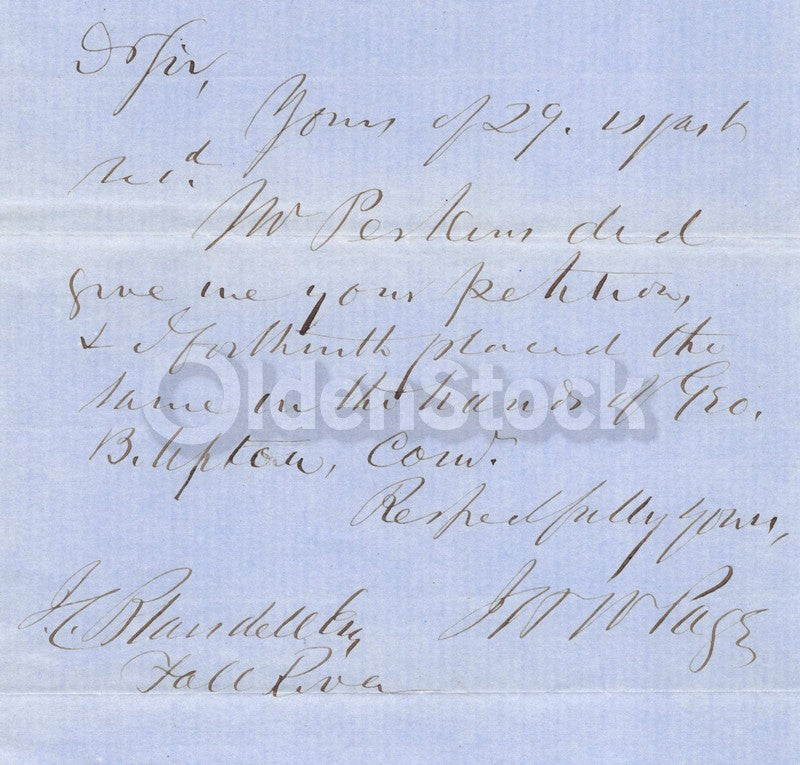 Dr Sir,
Yours of 29. is just
rec'd.
Mr Perkins did
give me your petition,
& I forthwith placed the
same in the hands of Geo.
B. Upton, Com'r.
Respectfully Yours,
Page
J.C. Blaisdell, Esq
Fall River
OldenStock